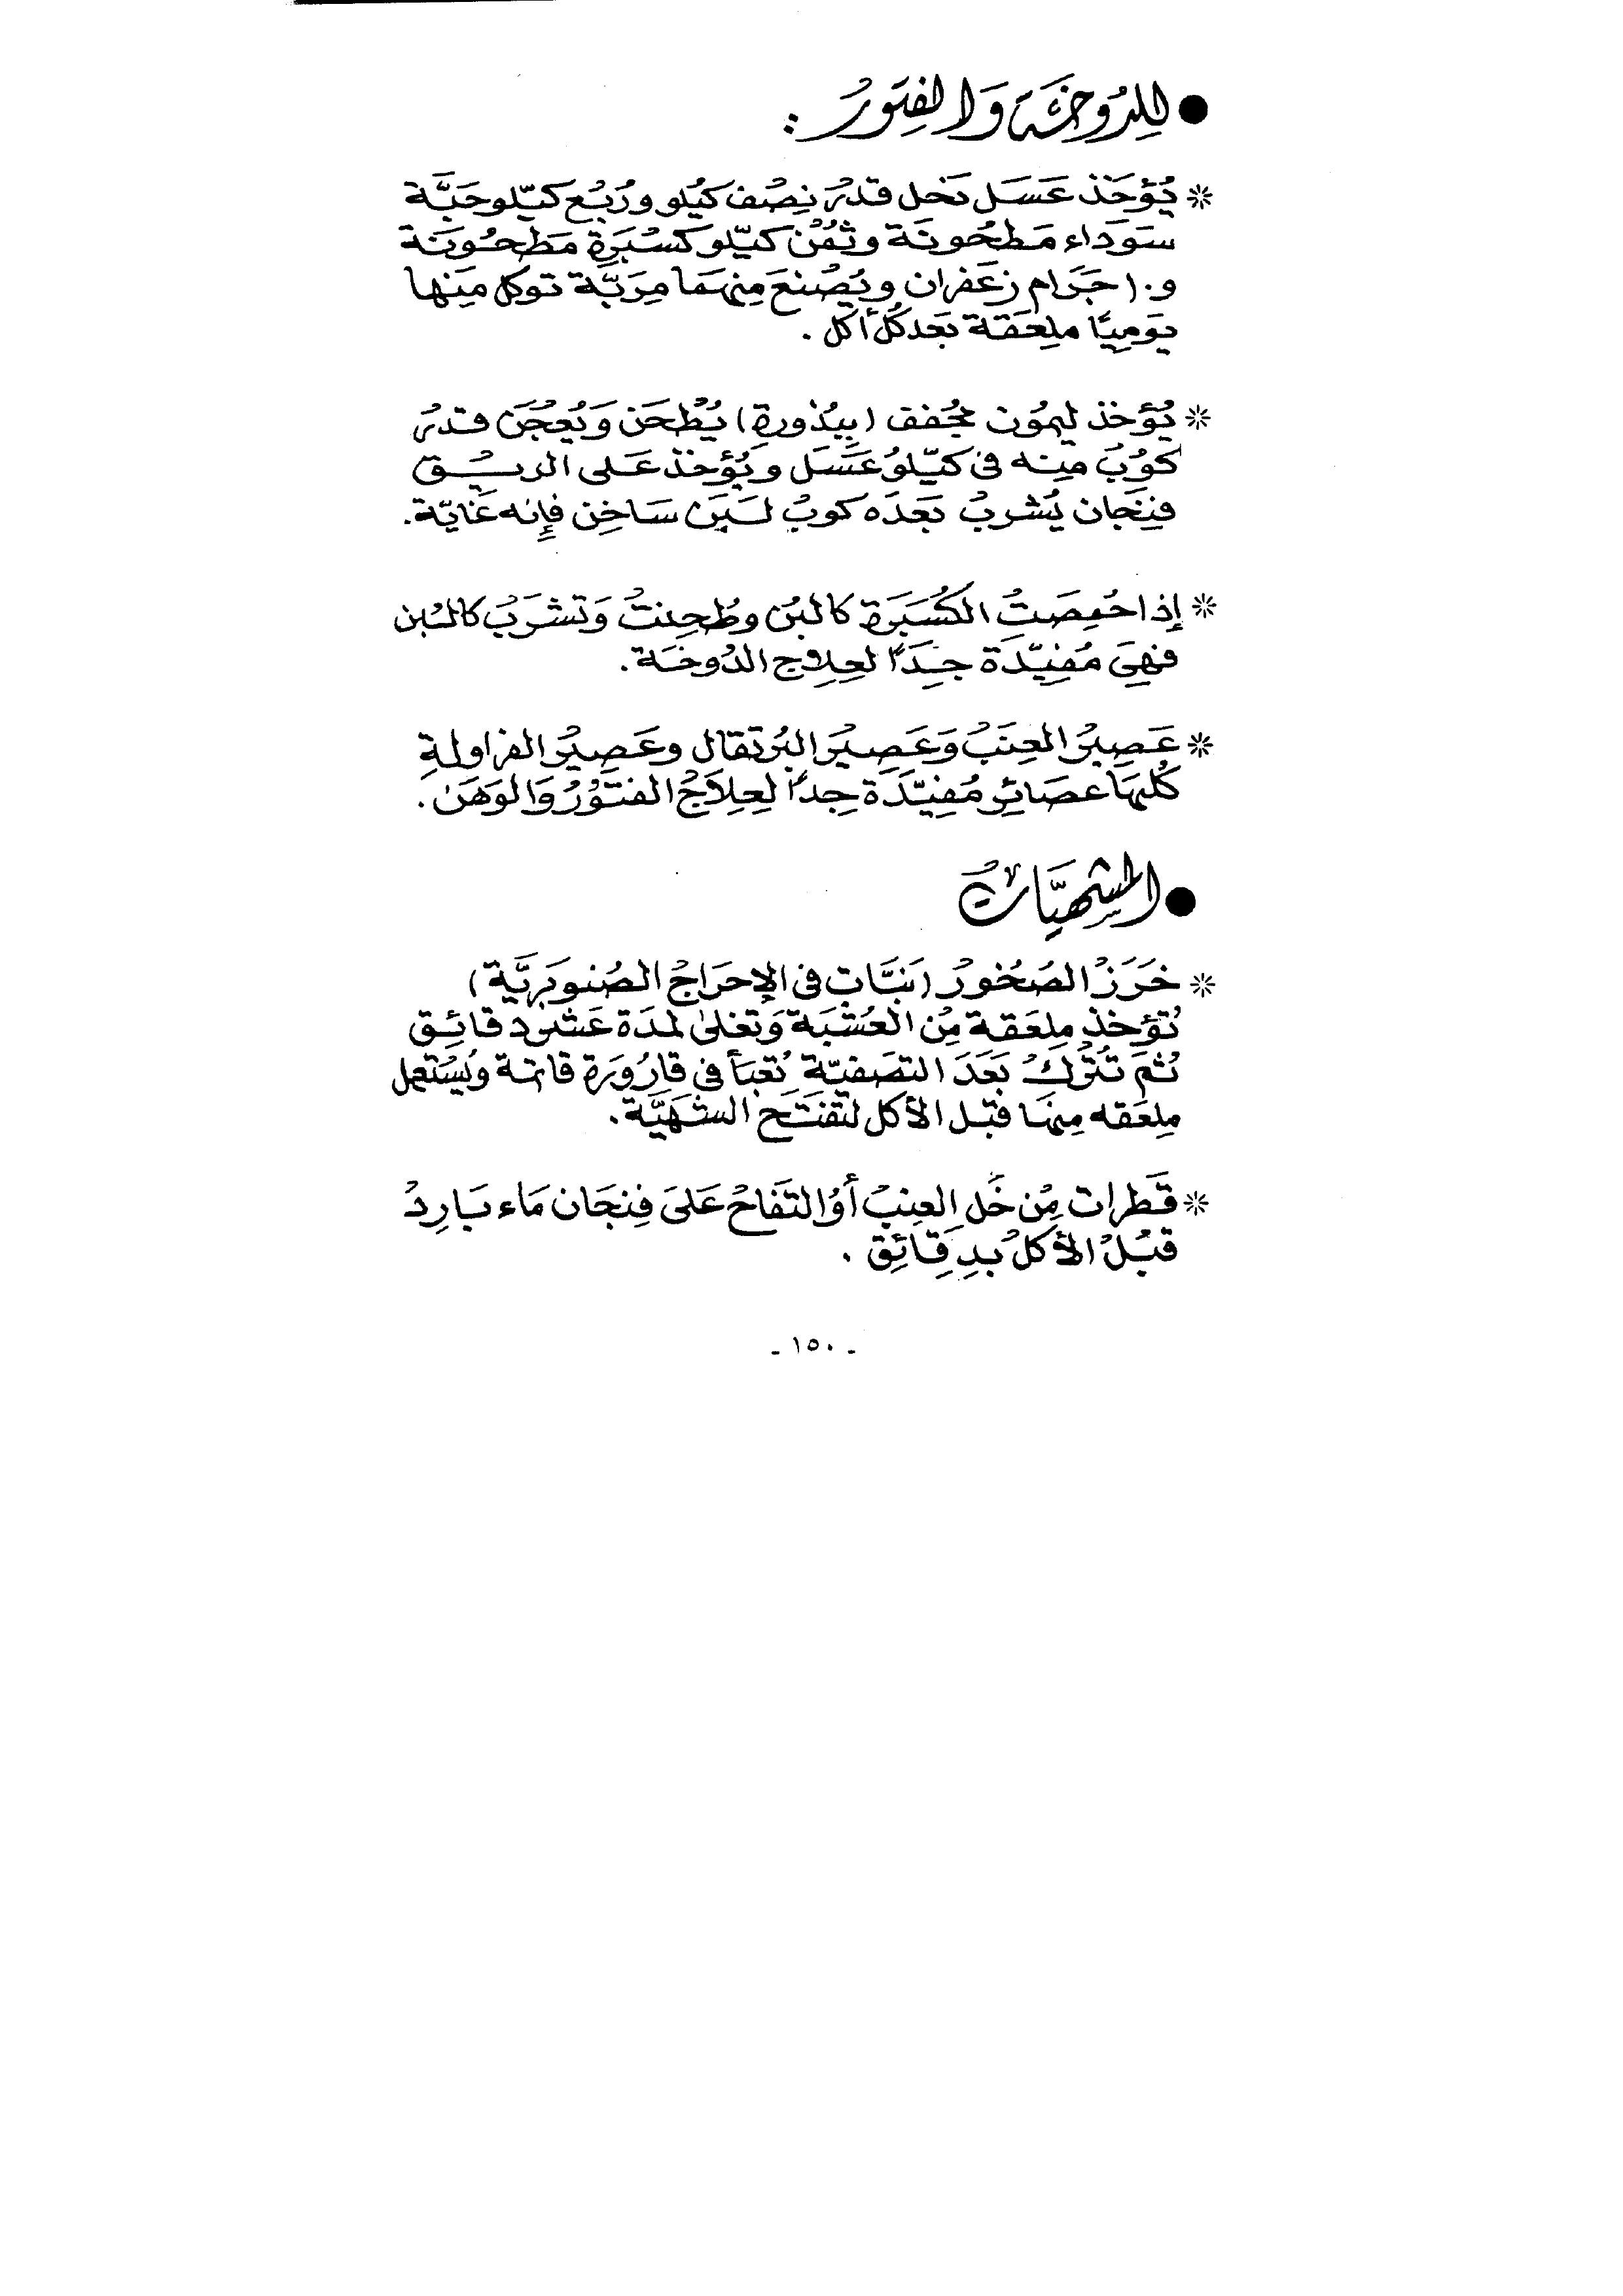 ● للِدُوخَة وَالفتور :
* يُؤخَذ عَسَل نَحل قدرُ نِصُف كيُلو ورُبُع كيّلو حَبَّة
سَودَاء مَطحُونَة وثمُنْ كيّلو كسْبَرَة مَطحُونَة
و١٠ جَرَام زعَفران ويَصُنعَ مِنهمَا مِرَبَّة توكل مَنِها
يَومِيًا ملعَقة بَعَد كُل أكل .
* يُؤخذ ليمُون مجُفف (ببُذورة) يُطُحَن وَيُعجَن قدرُ
كوُبُ مِنه فى كيّلوُ عَسَل ويؤُخذ عَلى الريُق
فنِجَان يُشربُ بَعَدَه كوبُ لبَن سَاخِن فإِنه غايّة.
* إذا حُمِصَتُ الكُسبَرَة كالبُن وطُحِنتُ وَتشرَبُ كالبُن
فهِىَ مُفيّدَة جِدَاً لعِلاج الدُوخَة.
* عَصِيرُ العِنَبُ وَعَصِيُر البُرتقال وعَصِيرُ الفراولةِ
كُلهَا عصَائِر مُفيّدَة جِداً لعِلِاَجُ الفتوُرُ وَالوَهَن .
● المشهيَّاتُ
* خَرَزُ الصُخورُ (نبَّات فى الإحرَاجُ الصُنوبَريَّة)
تُؤخذ مِلعَقة مِنُ العُشبَة وَتغلىٰ لمدَة عَشرَ دقائِق
ثُمَ تُتَركُ بَعَدَ التصَفيّة تُعبَأ فى قارُورَة قاتمة ويُستعِمل
مِلعَقه مِنهَا قبَل الأكل لتفتَحَ الشهَيَّة.
* قَطرات مِنُ خَل العِنبُ أوُ التفَاحُ عَلىَ فِنجَان مَاء بَارِدُ
قبُلُ الأكلُ بدِقِائِق .
- ١٥٠ -